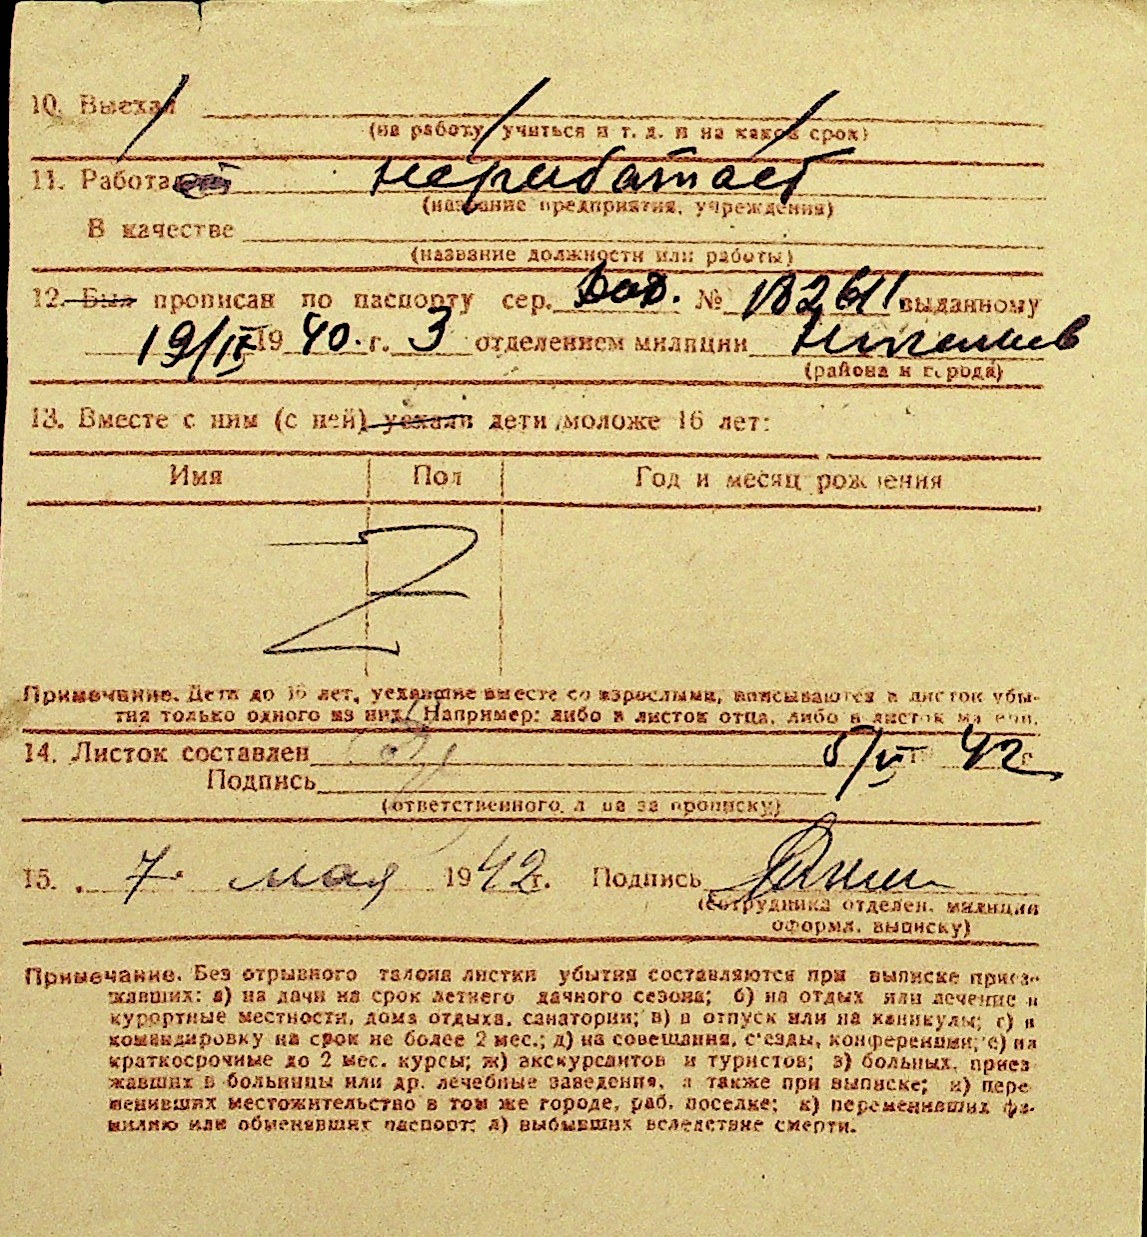 10. Выехал
(на работу, учиться и т. д. и на какой срок)
11. Работа неработает
(название предприятия, учреждения)
В качестве
(название должности или работы)
12. Был прописан по паспорту сер. № выданному
19/IV 1940. г. 3 отделением милиции
(района и города)
13. Вместе с ним (с ней) уехали дети моложе 16 лет:
Имя Пол Год и месяц рождения
Z
Примечание. Дети до 16 лет, уехавшие вместе со взрослыми, вписываются в листок убы-
тия только одного из них. Например: либо в листок отца, либо в листок матери.
14. Листок составлен 5/V 42 г
Подпись
(ответственного лица за прописку)
15. 7. мая 1942г. Подпись
(сотрудника отделен. милиции
оформл. выписку)
Примечание. Без отрывного талона листки убытия составляются при выписке приез-
жавших: а) на дачи на срок летнего дачного сезона; б) на отдых или лечение в
курортные местности, дома отдыха, санатории; в) в отпуск или на каникулы; г) в
командировку на срок не более 2 мес.; д) на совещания, с'езды, конференции; е) на
краткосрочные до 2 мес. курсы; ж) экскурсантов и туристов; з) больных, приез
жавших в больницы или др. лечебные заведения, а также при выписке; и) пере
менивших местожительство в том же городе, раб. поселке; к) переменивших фа-
милию или обменявших паспорт; л) выбывших вследствие смерти.